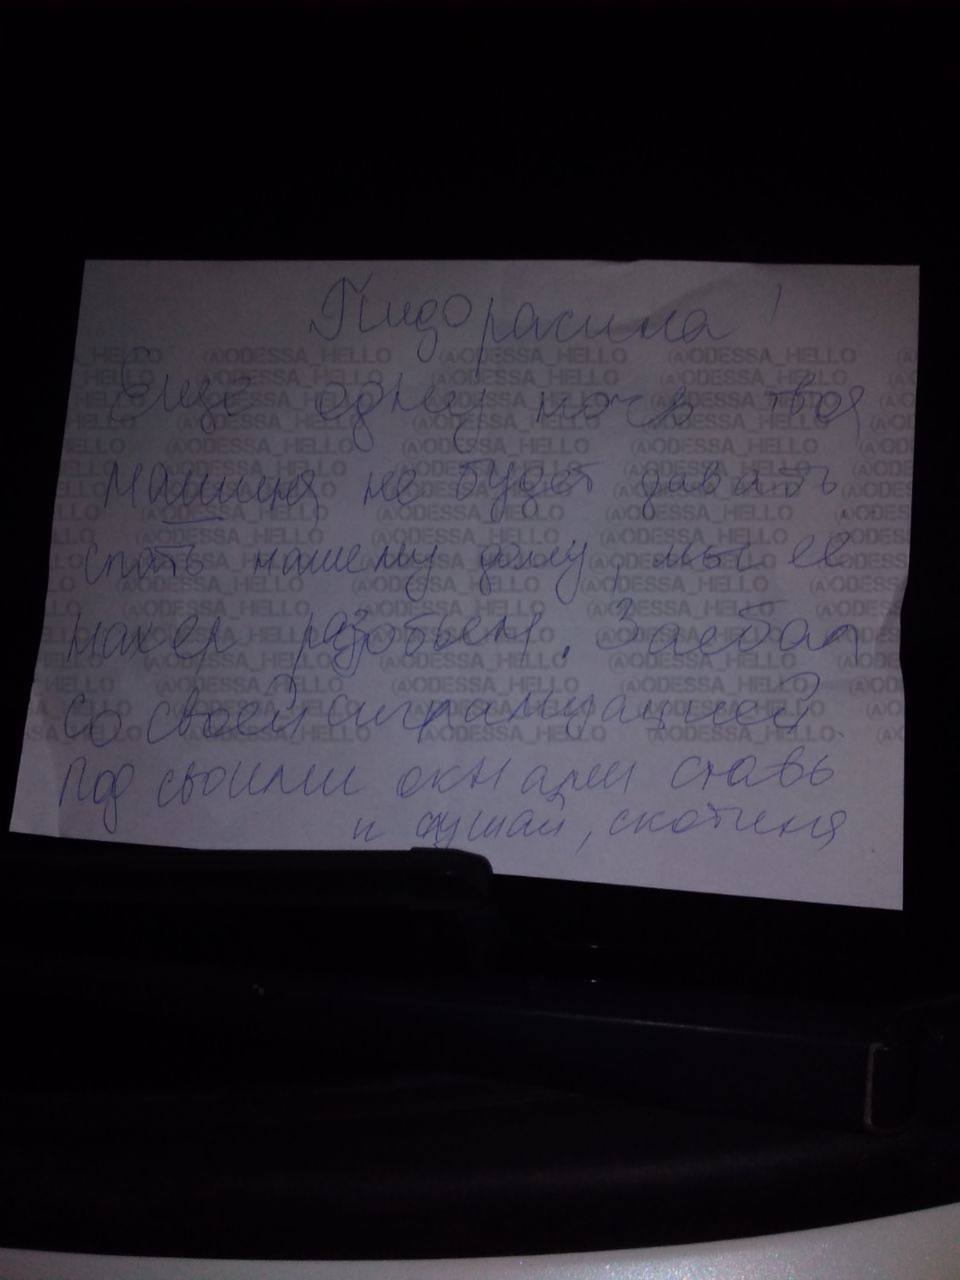 Пидорасина!
Еще одну ночь твоя
машиня не будет давать
спать нашему дому, мы ее
нахер разобьем. Заебал
со своей сигрализацией.
Под своими окнами ставь
и слушай, скотиня
@ODESSA_HELLO